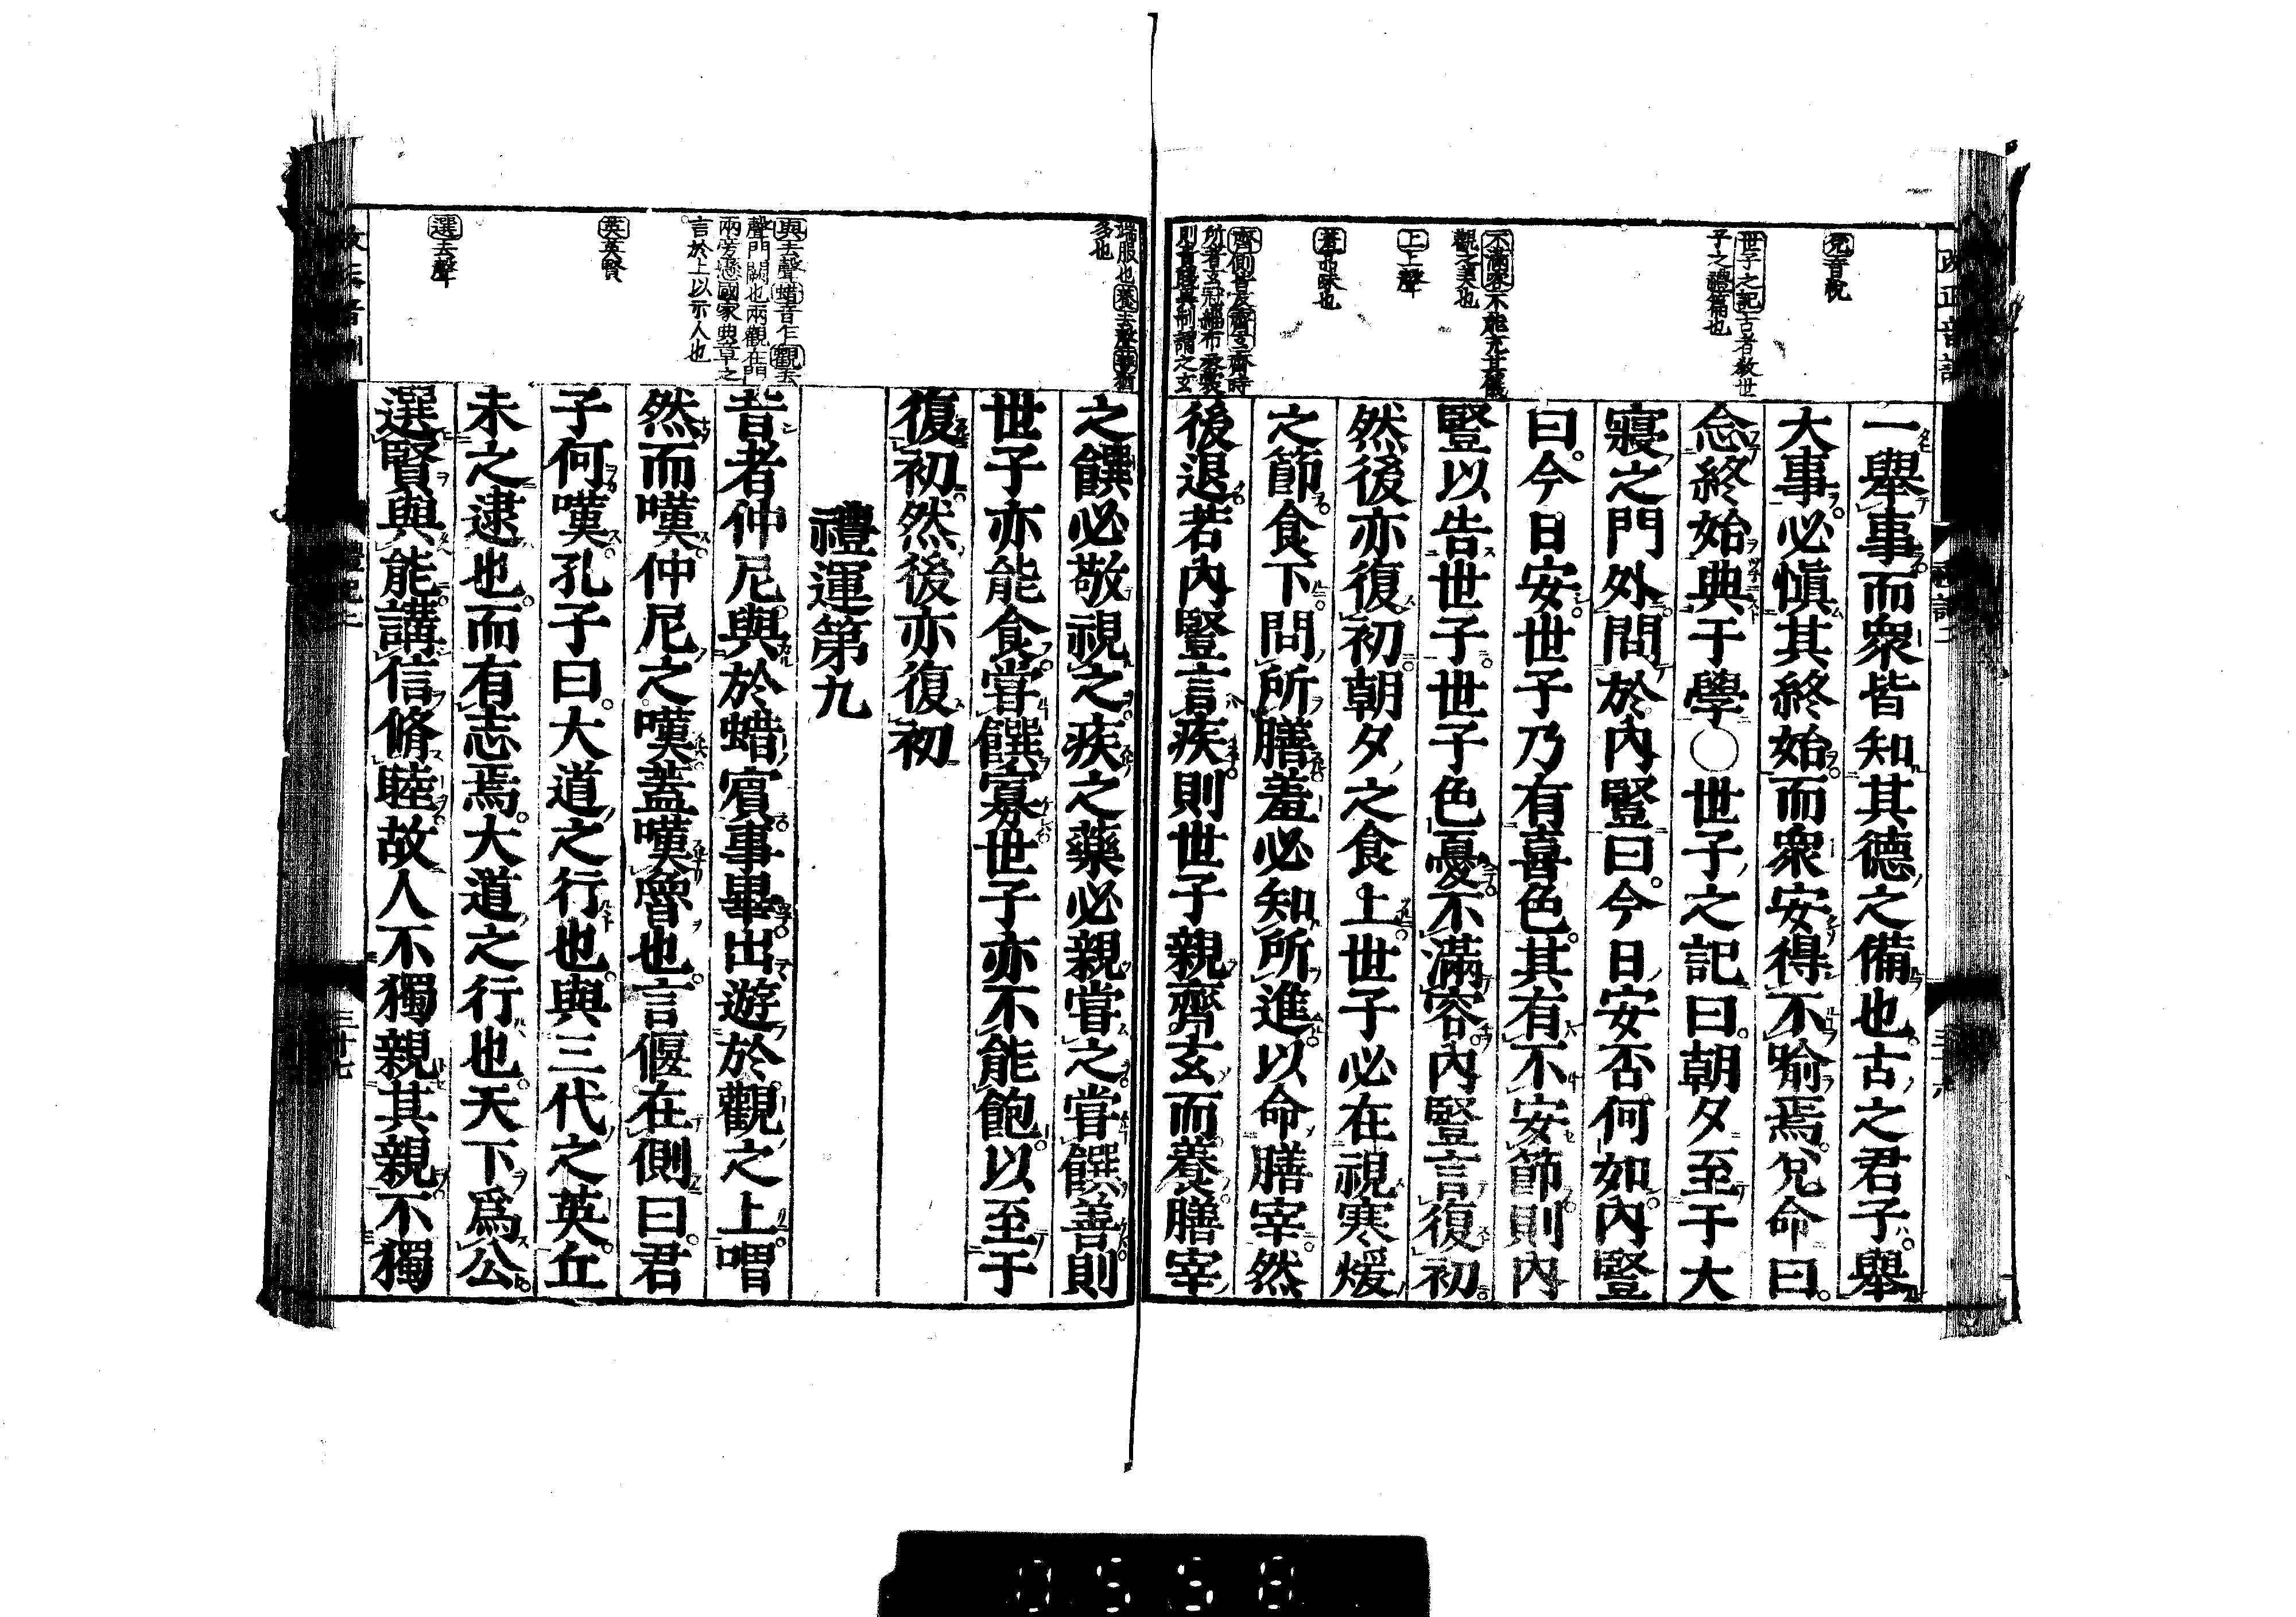 兌音税
世子之記古者教世
子之禮篇也
不滿容不能充其儀
觀之美也
上上聲
羞品味也
齊側皆反齊玄齊時
所著玄冠緇布衣裳
則貴賤異制謂之玄
一舉事而衆皆知其德之備也古之君子舉
大事必愼其終始而衆安得不喩焉兌命曰
念終始典于學○世子之記曰朝夕至于大
寢之門外問於內豎曰今日安否何如內豎
曰今日安世子乃有喜色其有不安節則內
豎以告世子世子色憂不滿容內豎言復初
然後亦復初朝夕之食上世子必在視寒煖
之節食下問所膳羞必知所進以命膳宰然
後退若內豎言疾則世子親齊玄而養膳宰
端服也養去聲善猶
多也
與去聲蜡音乍觀去
聲門闕也兩觀在門
兩旁懸國家典章之
言於上以示人也
英英賢
選去聲
之饌必敬視之疾之藥必親嘗之嘗饌善則
世子亦能食嘗饌寡世子亦不能飽以至于
復初然後亦復初
禮運第九
昔者仲尼與於蜡賓事畢出遊於觀之上喟
然而嘆仲尼之嘆蓋嘆魯也言偃在側曰君
子何嘆孔子曰大道之行也與三代之英丘
未之逮也而有志焉大道之行也天下爲公
選賢與能講信脩睦故人不獨親其親不獨
三十七
0558